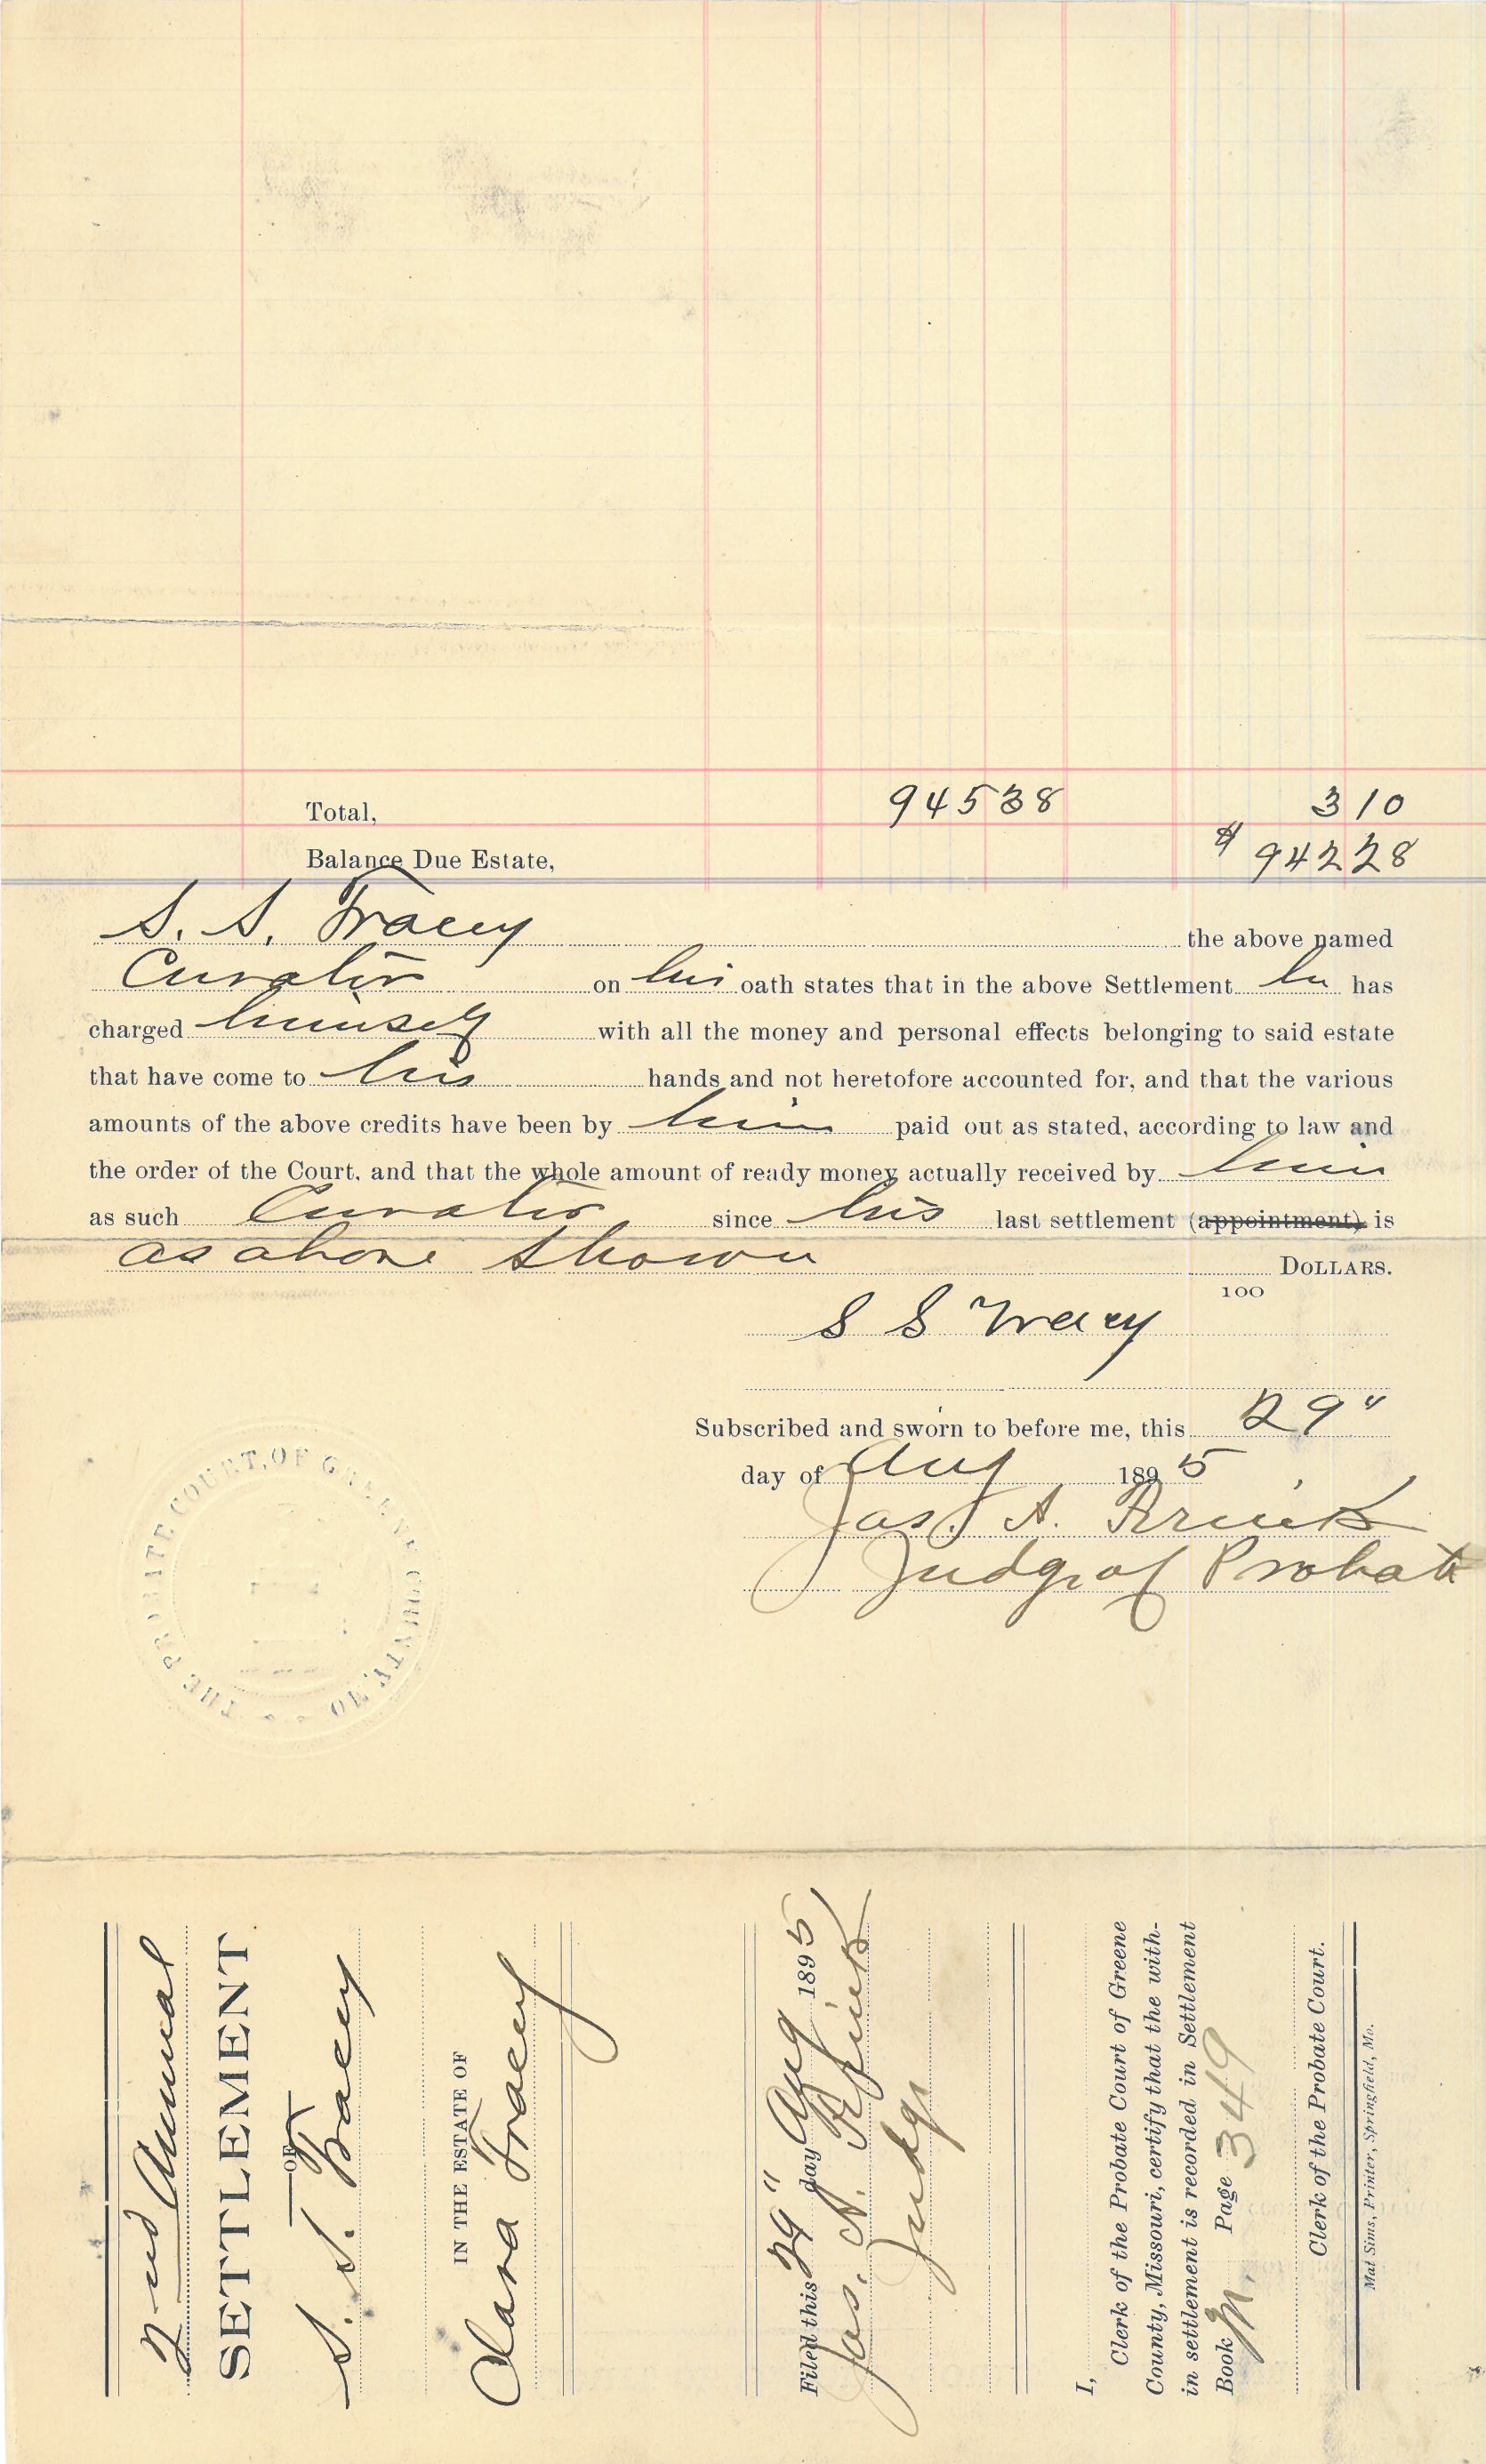 Total, 94538 310
Balance Due Estate, $ 94228
S. S. Tracey the above named
Curator on his oath states that in the above Settlement he has
charged himself with all the money and personal effects belonging to said estate
that have come to his hands and not heretofore accounted for, and that the various
amounts of the above credits have been by him paid out as stated, according to law and
the order of the Court, and that the whole amount of ready money actually received by him
as such Curator since his last settlement (appointment) is
as above shown DOLLARS.
100
S S Tracey
Subscribed and sworn to before me, this 29"
day of Aug 1895
Jas. A.
Judge of Probate
THE PROBATE COURT, OF GREENE COUNTY, MO
2nd Annual
SETTLEMENT
OF
S. S. Tracey
IN THE ESTATE OF
Clara Tracey
Filed this 29" day Aug 1895
Jas. A.
Judge
I,
Clerk of the Probate Court of Greene
County, Missouri, certify that the with-
in settlement is recorded in Settlement
Book M. Page 349
Clerk of the Probate Court.
Mat Sims, Printer, Springfield, Mo.